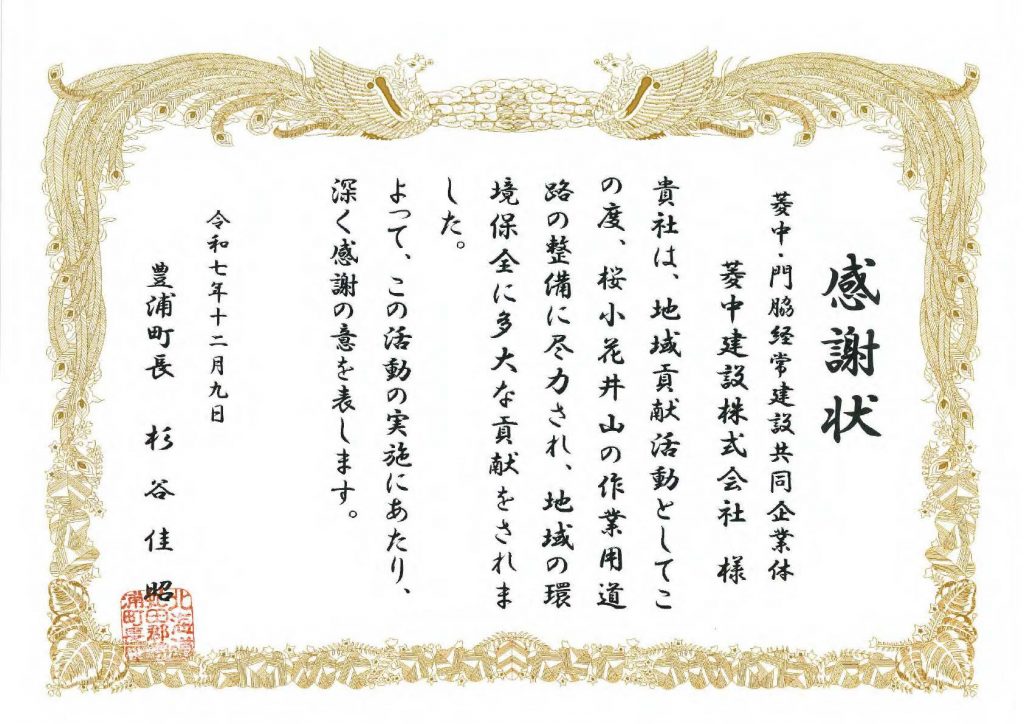 感謝状
菱中・門脇経常建設共同企業体
菱中建設株式会社 様
貴社は、地域貢献活動としてこ
の度、桜小花井山の作業用道
路の整備に尽力され、地域の環
境保全に多大な貢献をされま
した。
よって、この活動の実施にあたり、
深く感謝の意を表します。
令和七年十二月九日
豊浦町長 杉谷佳昭
北海道
浦町長